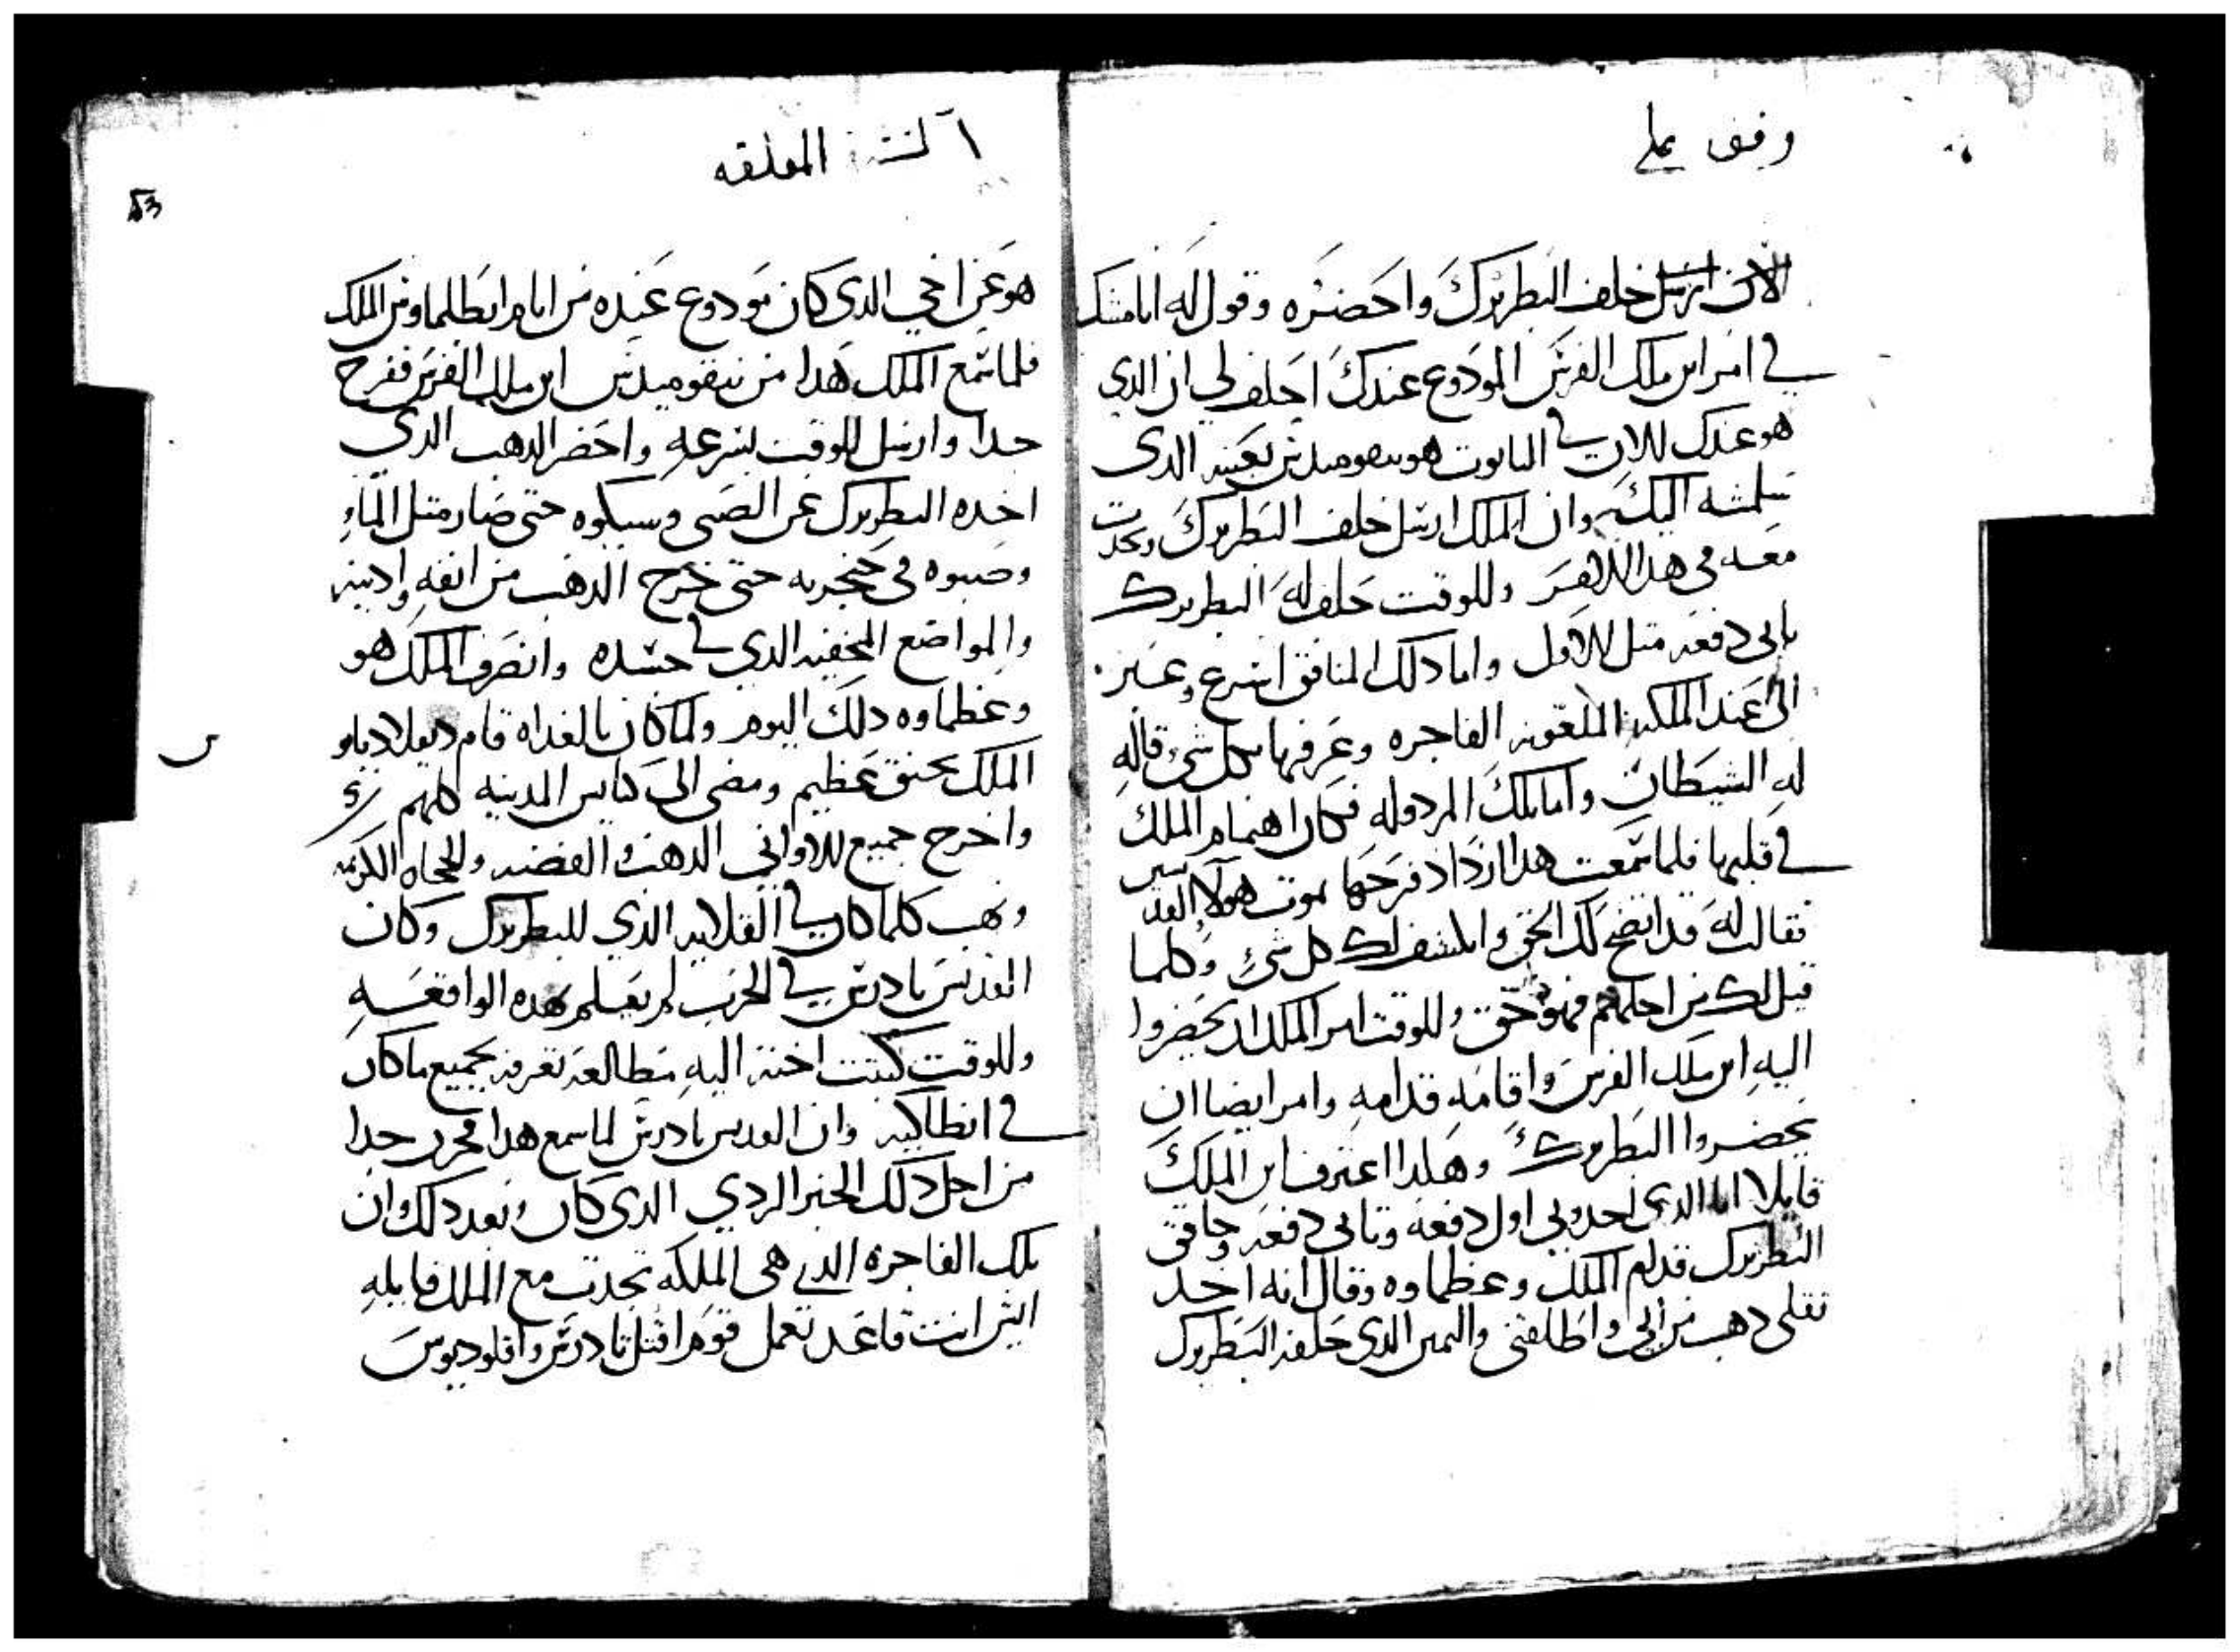 وقف على
الان ارسل خلف البطريرك واحضره وقول له انا مشكك
في امر ابن ملك الفرس المودوع عندك احلف لي ان الدي
هو عندك للان في التابوت هو نيقوميدس بعينه الدي
سلمته اليك وان الملك ارسل خلف البطريرك وتحدت
معه في هدا الامر وللوقت حلف له البطريرك
تاني دفعه متل الاول واما دلك المنافق اسرع وعبر
الى عند الملكه الملعونه الفاجره وعرفها بكل شي قاله
له الشيطان واما تلك المردوله فكان اهتمام الملك
في قلبها فلما سمعت هدا ازداد فرحها بموت هولاء القديسين
فقالت له قد اتضح لك الحق وانكشف لك كل شي وكلما
قيل لك من اجلهم فهو حق وللوقت امر الملك ان يحضروا
اليه ابن ملك الفرس واقامه قدامه وامر ايضا ان
يحضروا البطريرك وهكدا اعترف ابن الملك
قايلا انا الدي اخدوني اول دفعه وتاني دفعه وحاقق
البطريرك قدام الملك وعظماوه وقال انه اخد
تقلي دهب من ابي واطلقني واليمين الدي حلفه البطريرك
المعلقه
هو عن اخي الدي كان مودوع عنده من ايام ابطلماوس الملك
فلما سمع الملك هدا من نيقوميدس ابن ملك الفرس ففرح
جدا وارسل للوقت بسرعه واحضر الدهب الدي
اخده البطريرك عن الصبي وسبكوه حتى صار متل الماء
وصبوه في حنجرته حتى خرج الدهب من انفه وادنيه
والمواضع المخفيه الدي في جسده وانصرف الملك هو
وعظماوه دلك اليوم ولما كان بالغداه قام ديقلاديانو
الملك بحنق عظيم ومضى الى كنايس المدينه كلهم
واخرج جميع الاواني الدهب والفضه والحجاره الكريمه
ونهب كلما كان في القلايه الذي للبطريرك وكان
القديس تادرس في الحرب لم يعلم بهده الواقعه
وللوقت كتبت اخته اليه مطالعه تعرفه بجميع ما كان
في انطاكيه وان القديس تادرس لما سمع هدا حزن جدا
من اجل دلك الخبر الردي الدي كان وبعد دلك ان
تلك الفاجره الدي هي الملكه تحدتت مع الملك قايله
ايش انت قاعد تعمل قوم اقتل تادرس واقلوديوس